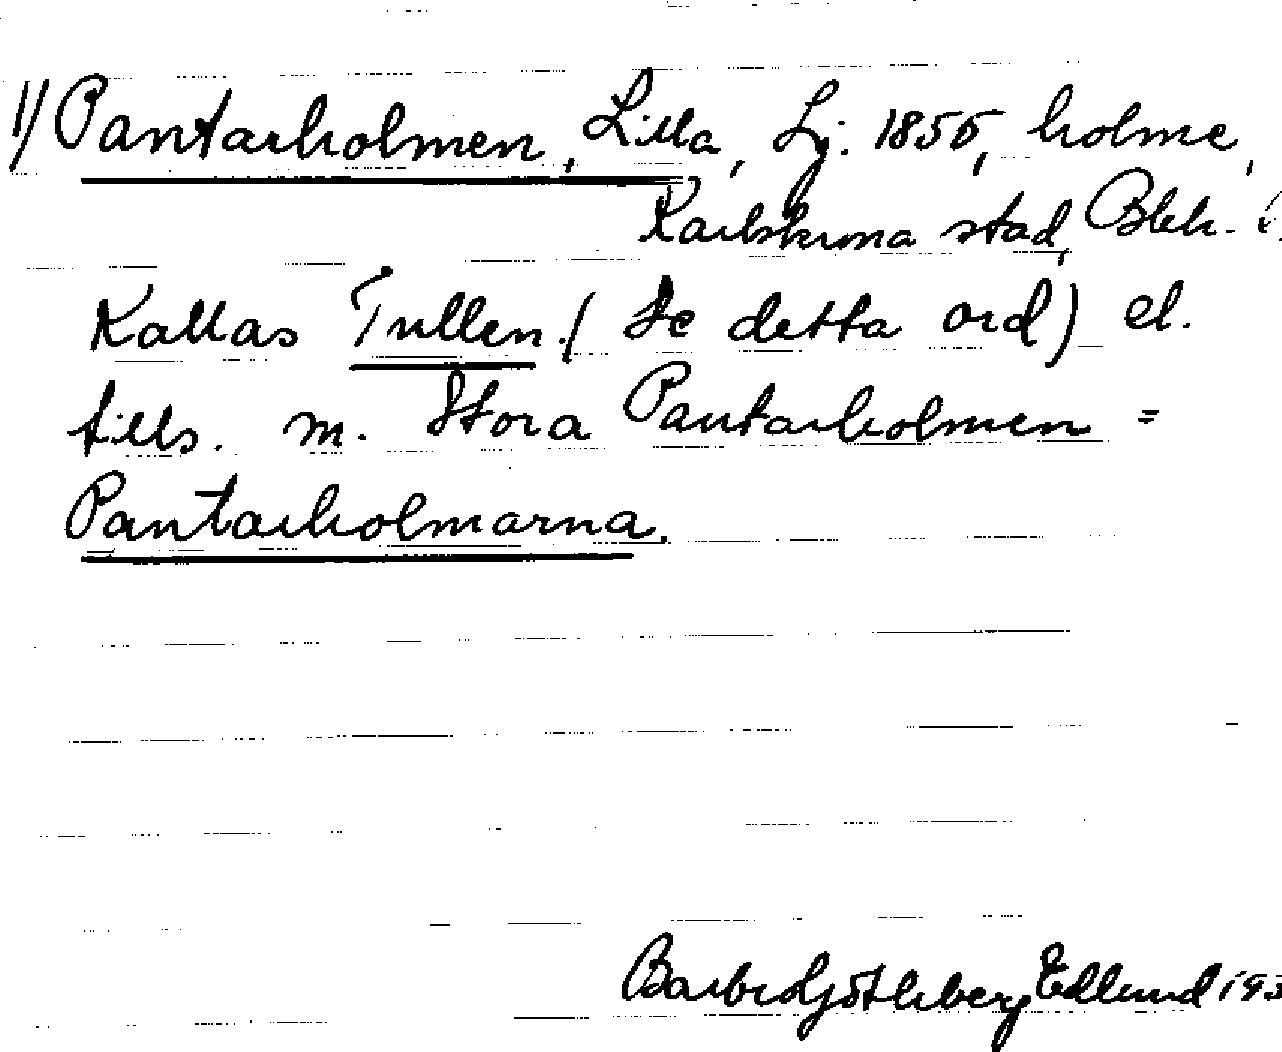 1/ Pantarholmen, Lilla, Lj. 1856, holme,
Karlskrona stad, Blek.
Kallas Tullen. (Se detta ord) el.
tills. m. Stora Pantarholmen =
Pantarholmarna.
Barbro Götheberg Edlund 193